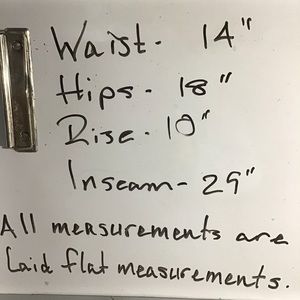 Waist- 14"
Hips- 18"
Rise-10"
Inseam-29"
All measurements are
Laid flat measurements.